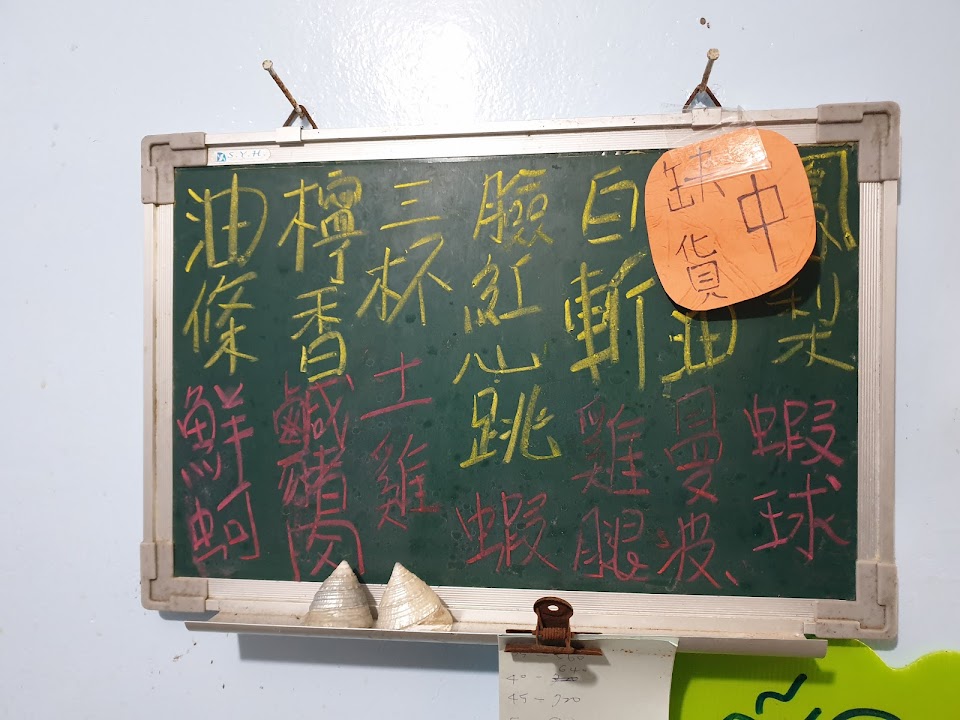 S.Y.H.
鳳梨蝦球
油曼波
白斬雞腿
臉紅心跳蝦
三杯土雞
檸香鹹豬肉
油條鮮蚵
缺貨中
640
40-
45-720